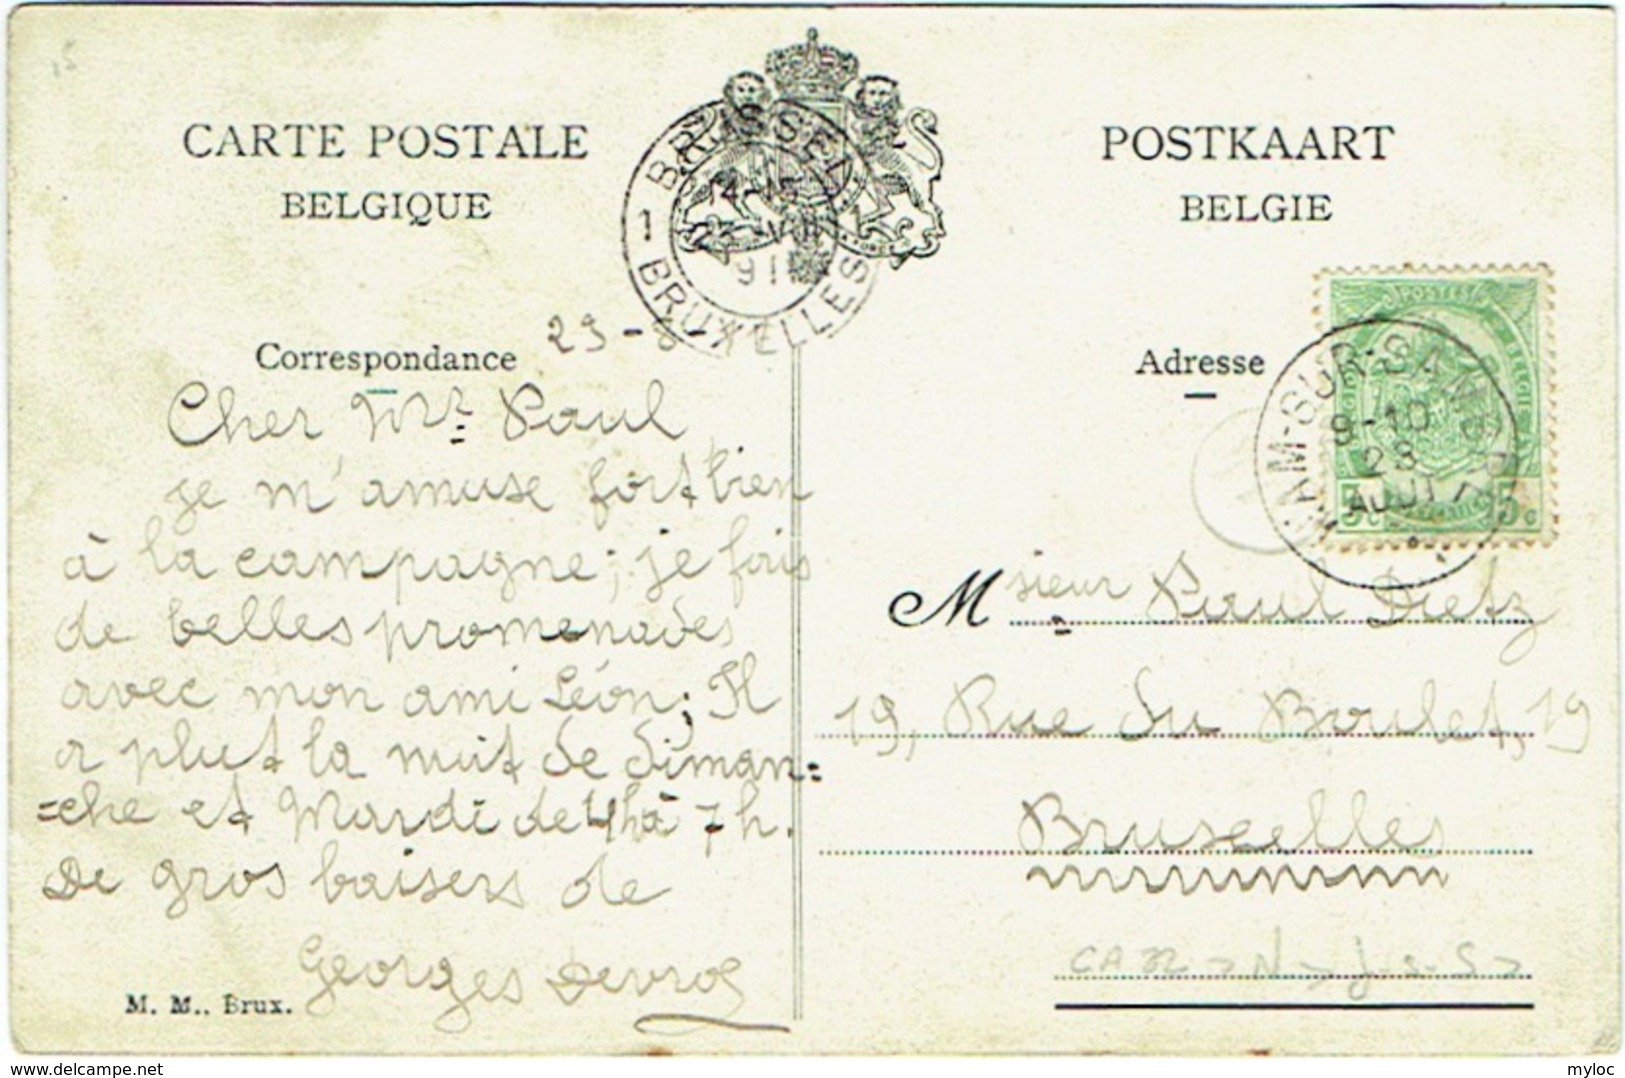 CARTE POSTALE
BELGIQUE
POSTKAART
BELGIE
1 BRUSSEL 1
BRUXELLES
23-VIII
Correspondance
Adresse
POSTES
9-10
23
AOUT
5c 5c
Cher Mr Paul
je m'amuse fort bien
à la campagne; je fais
de belles promenades
avec mon ami Léon; Il
a plut la nuit de diman=
=che et Mardi de 4h à 7h.
De gros baisers de
Georges Devros
M. M., Brux.
Msieur Paul Dietz
19, Rue du Boulet, 19
Bruxelles
delcampe.net
myloc